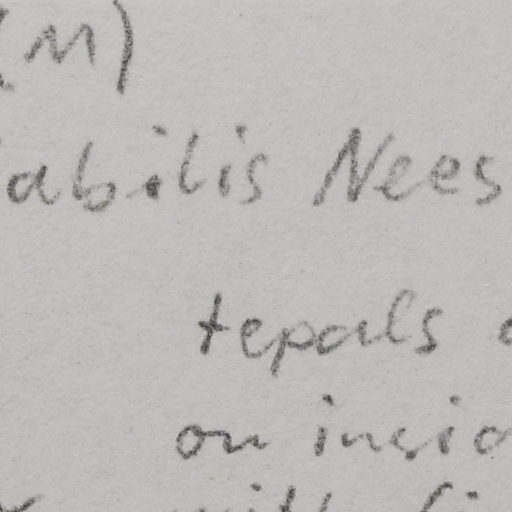 M)
abilis Nees
tepals
on insid